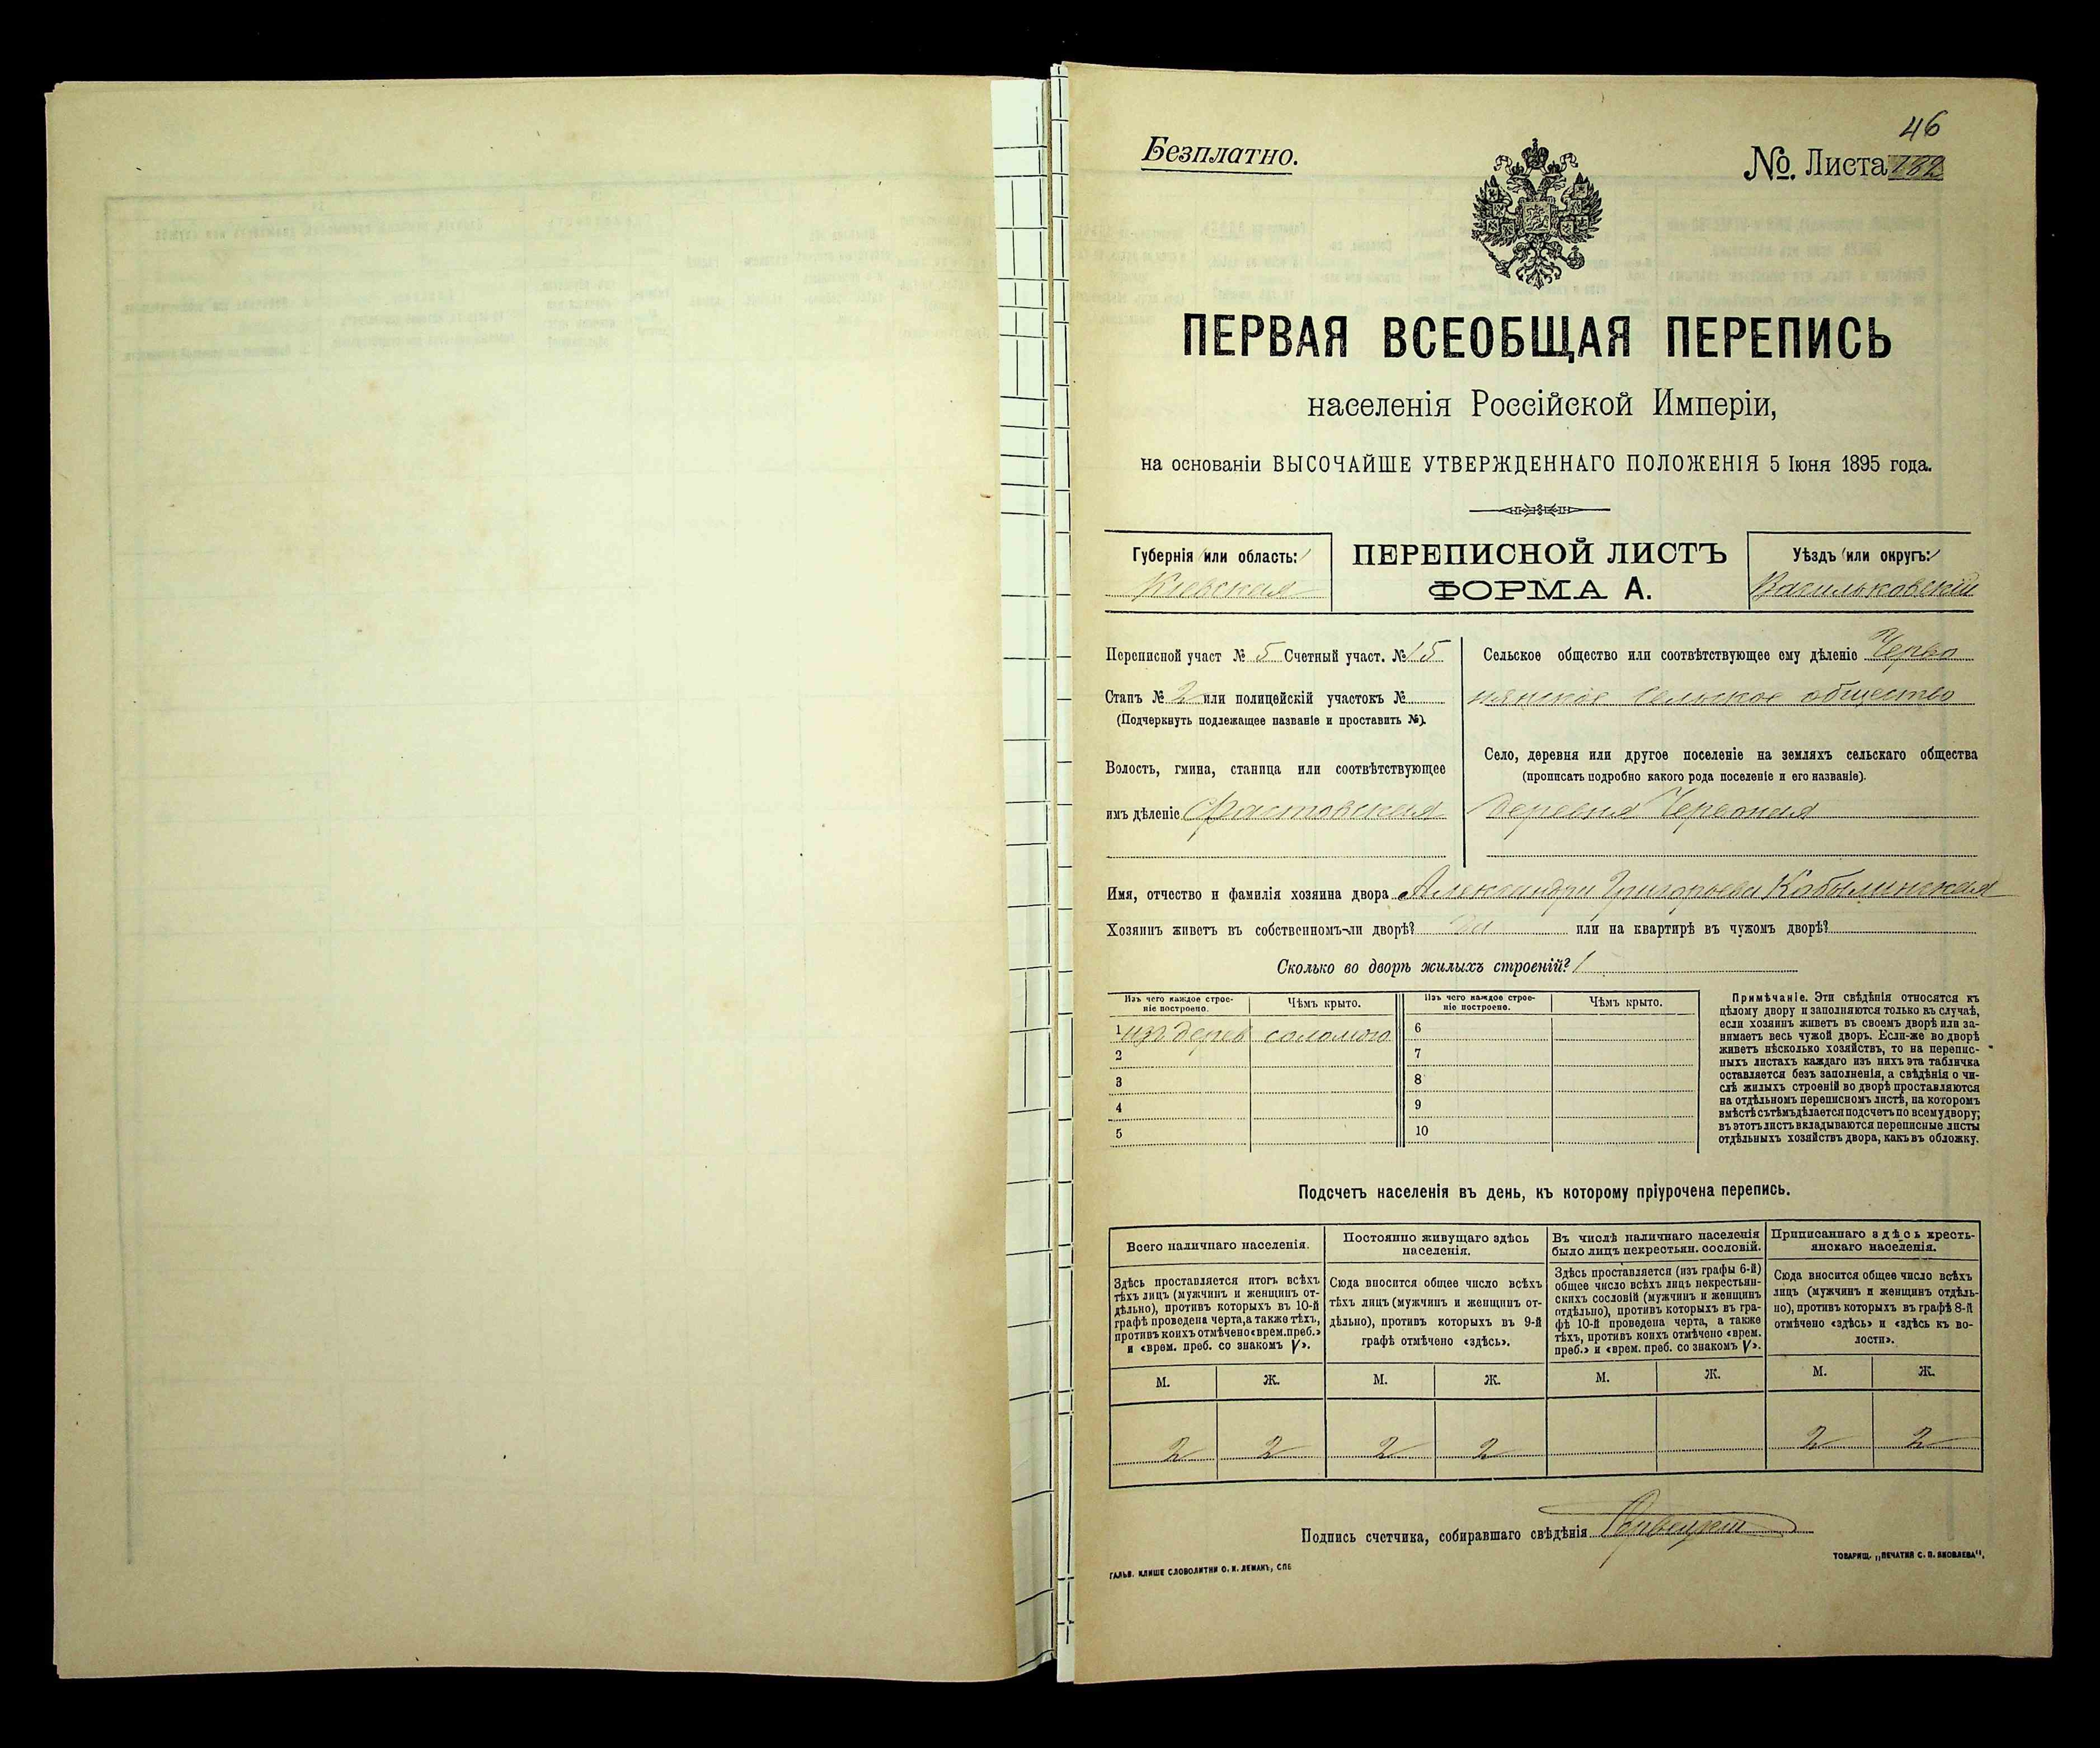 46
Безплатно.
№. Листа 132
ПЕРВАЯ ВСЕОБЩАЯ ПЕРЕПИСЬ
населенія Россійской Имперіи,
на основаніи ВЫСОЧАЙШЕ УТВЕРЖДЕННАГО ПОЛОЖЕНІЯ 5 Іюня 1895 года.
Губернія (или область:)
Кіевская
ПЕРЕПИСНОЙ ЛИСТЪ
ФОРМА А.
Уѣздъ (или округъ:)
Васильковскій
Переписной участ № 5 Счетный участ. № 15
Станъ № 2 или полицейскій участокъ №
(Подчеркнуть подлежащее названіе и проставить №).
Волость, гмина, станица или соотвѣтствующее
имъ дѣленіе Фастовская
Сельское общество или соотвѣтствующее ему дѣленіе Черво
нянское сельское общество
Село, деревня или другое поселеніе на земляхъ сельскаго общества
(прописать подробно какого рода поселеніе и его названіе).
деревня Червоная
Имя, отчество и фамилія хозяина двора Александра Григорьева Кобылинская
Хозяинъ живетъ въ собственномъ-ли дворѣ? да или на квартирѣ въ чужомъ дворѣ?
Сколько во дворѣ жилыхъ строеній? 1
Изъ чего каждое строе-
ніе построено.
Чѣмъ крыто.
1 изъ дерев соломою
2
3
4
5
Изъ чего каждое строе-
ніе построено.
Чѣмъ крыто.
6
7
8
9
10
Примѣчаніе. Эти свѣдѣнія относятся къ
цѣлому двору и заполняются только въ случаѣ,
если хозяинъ живетъ въ своемъ дворѣ или за-
нимаетъ весь чужой дворъ. Если-же во дворѣ
живетъ нѣсколько хозяйствъ, то на перепис-
ныхъ листахъ каждаго изъ нихъ эта табличка
оставляется безъ заполненія, а свѣдѣнія о чи-
слѣ жилыхъ строеній во дворѣ проставляются
на отдѣльномъ переписномъ листѣ, на которомъ
вмѣстѣ съ тѣмъ дѣлается подсчетъ по всему двору;
въ этотъ листъ вкладываются переписные листы
отдѣльныхъ хозяйствъ двора, какъ въ обложку.
Подсчетъ населенія въ день, къ которому пріурочена перепись.
Всего наличнаго населенія.
Здѣсь проставляется итогъ всѣхъ
тѣхъ лицъ (мужчинъ и женщинъ от-
дѣльно), противъ которыхъ въ 10-й
графѣ проведена черта, а также тѣхъ,
противъ коихъ отмѣчено «врем. преб.»
и «врем. преб. со знакомъ V».
Постоянно живущаго здѣсь
населенія.
Сюда вносится общее число всѣхъ
тѣхъ лицъ (мужчинъ и женщинъ от-
дѣльно), противъ которыхъ въ 9-й
графѣ отмѣчено «здѣсь».
Въ числѣ наличнаго населенія
было лицъ некрестьян. сословій.
Здѣсь проставляется (изъ графы 6-й)
общее число всѣхъ лицъ некрестьян-
скихъ сословій (мужчинъ и женщинъ
отдѣльно), противъ которыхъ въ гра-
фѣ 10-й проведена черта, а также
тѣхъ, противъ коихъ отмѣчено «врем.
преб.» и «врем. преб. со знакомъ V».
Приписаннаго здѣсь кресть-
янскаго населенія.
Сюда вносится общее число всѣхъ
лицъ (мужчинъ и женщинъ отдѣль-
но), противъ которыхъ въ графѣ 8-й
отмѣчено «здѣсь» и «здѣсь къ во-
лости».
М. Ж. М. Ж. М. Ж. М. Ж.
2 2 2 2 2 2
Подпись счетчика, собиравшаго свѣдѣнія
ГАЛЬВ. КЛИШЕ СЛОВОЛИТНИ О. И. ЛЕМАНЪ, СПБ
ТОВАРИЩ. „ПЕЧАТНЯ С. П. ЯКОВЛЕВА".